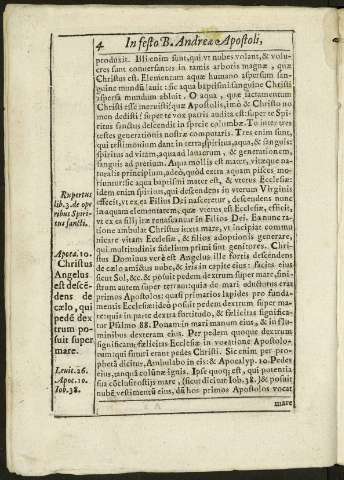 4 In festo B. Andreæ Apostoli,
prodoxit. Illi enim sunt, qui vt nubes volant, & volu-
cres sunt conuersantes in ramis arboris magnæ, quæ
Christus est. Elementum aquæ humano aspersum san-
guine mundū lauit: sic aqua baptismi sanguine Christi
aspersa mundum abluit. O aqua, quæ sacramentum
Christi esse meruisti: quæ Apostolis, imò & Christo no
men dedisti: super te vox patris audita est: super te Spi-
ritus sanctus descendit in specie columbæ. Tu inter tres
testes generationis nostræ computaris. Tres enim sunt,
qui testimonium dant in terra: spiritus, aqua, & sanguis:
spiritus ad vitam, aqua ad lauacrum, & generationem,
sanguis ad pretium. Aqua mollis est mater, vitæque na-
turalis principium, adeò, quòd extra aquam pisces mo-
riuntur: sic aqua baptismi mater est, & vterus Ecclesiæ:
idem enim spiritus, qui descendens in vterum Virginis
effecit, vt ex ea Filius Dei nasceretur, descendens nunc
in aquam elementarem, quæ vterus est Ecclesiæ, efficit,
vt ex ea filij iræ renascantur in Filios Dei. Ea nunc ra-
tione ambulat Christus iuxta mare, vt incipiat commu
nicare vitam Ecclesiæ, & filios adoptionis generare,
qui multitudinis fidelium primi sunt genitores. Chri-
stus Dominus verè est Angelus ille fortis descendens
de cælo amictus nube, & iris in capite eius: facies eius
sicut Sol, &c. & posuit pedem dextrum super mare, sini-
strum autem super terram: quia de mari eductutus erat
primos Apostolos: quasi primarios lapides pro funda-
mentis Ecclesiæ: ideò posuit pedem dextrum super ma-
re: quia in parte dextra fortitudo, & fœlicitas significa-
tor Psalmo 88. Ponam in mari manum eius, & in flu-
minibus dexteram eius. Per pedem quoque dextrum
significatur fœlicitas Ecclesiæ in vocatione Apostolo-
rum: qui futuri erant pedes Christi. Sic enim per pro-
phetā dicitur, Ambulabo in eis: & Apocalyp. 10. Pedes
eius, tanquā columnæ ignis. Ipse quoq; est, qui potentia
sua cōclusit ostijs mare, (sicut dicitur Iob. 38.) & posuit
nubē vestimentū eius, dū hos primos Apostolos vocat
mare
Rupertus
lib. 3. de ope
ribus Spiri-
tus sancti.
Apoca. 10.
Christus
Angelus
est descē-
dens de
cælo, qui
pedē dex
trum po-
suit super
mare.
Leuit. 26.
Apoc. 10.
Iob. 38.